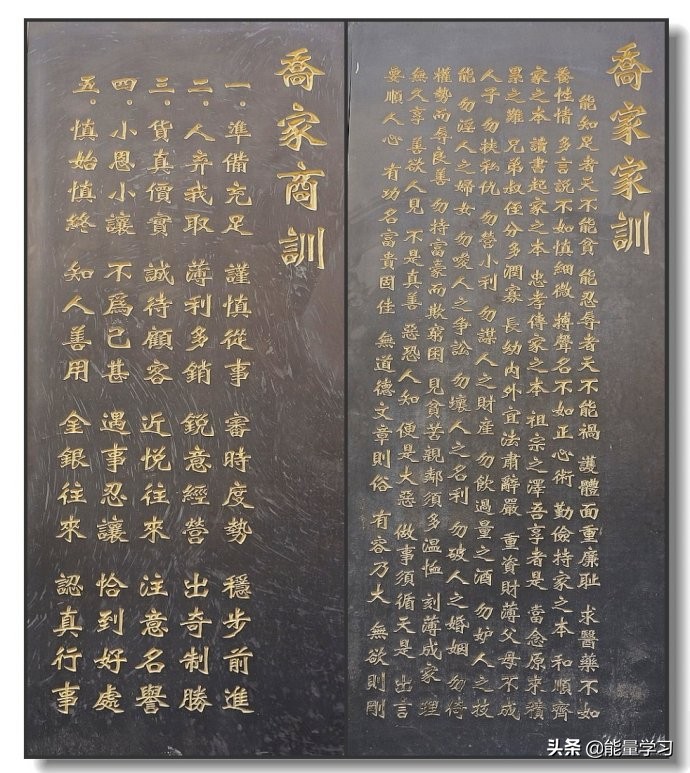 喬家家訓
能知足者天不能貧 能忍辱者天不能禍 護體面重廉耻 求醫藥不如
養性情 多言說不如慎細微 搏聲名不如正心術 勤儉持家之本 和順齊
家之本 讀書起家之本 忠孝傳家之本 祖宗之澤吾享者是 當念原來積
累之難 兄弟叔侄分多潤寡 長幼内外宜法肅辭嚴 重資財薄父母不成
人子 勿挾私仇 勿營小利 勿謀人之財産 勿飲過量之酒 勿妒人之技
能 勿淫人之婦女 勿唆人之爭訟 勿壞人之名利 勿破人之婚姻 勿侍
權勢而辱良善 勿持富豪而欺窮困 見貧苦親鄰須多溫恤 刻薄成家 理
無久享 善欲人見 不是真善 惡恐人知 便是大惡 做事須循天是 出言
要順人心 有功名富貴固佳 無道德文章則俗 有容乃大 無欲則剛
喬家商訓
一。準備充足 謹慎從事 審時度勢 穩步前進
二。人弃我取 薄利多銷 銳意經營 出奇制勝
三。貨真價實 誠待顧客 近悅往來 注意名譽
四。小恩小讓 不爲己甚 遇事忍讓 恰到好處
五。慎始慎終 知人善用 金銀往來 認真行事
头条 @能量学习